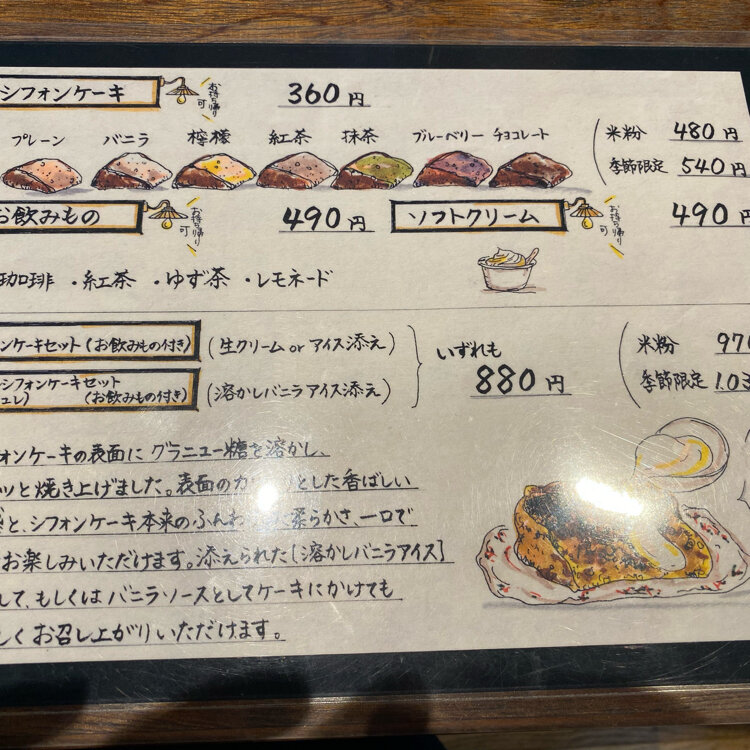 シフォンケーキ
お持ち帰り可
360円
プレーン バニラ 檸檬 紅茶 抹茶 ブルーベリー チョコレート
米粉 480円
季節限定 540円
お飲みもの
お持ち帰り可
490円
ソフトクリーム
お持ち帰り可
490円
珈琲 ・紅茶 ・ゆず茶 ・レモネード
ンケーキセット(お飲みもの付き)
(生クリーム or アイス添え)
シフォンケーキセット
ュレ) (お飲みもの付き)
(溶かしバニラアイス添え)
いずれも
880円
米粉 970
季節限定 1.03
ォンケーキの表面にグラニュー糖を溶かし、
ッと焼き上げました。表面のカ とした香ばしい
と、シフォンケーキ本来のふんわ 柔らかさ、一口で
お楽しみいただけます。添えられた[溶かしバニラアイス]
して、もしくはバニラソースとしてケーキにかけても
しくお召し上がりいただけます。